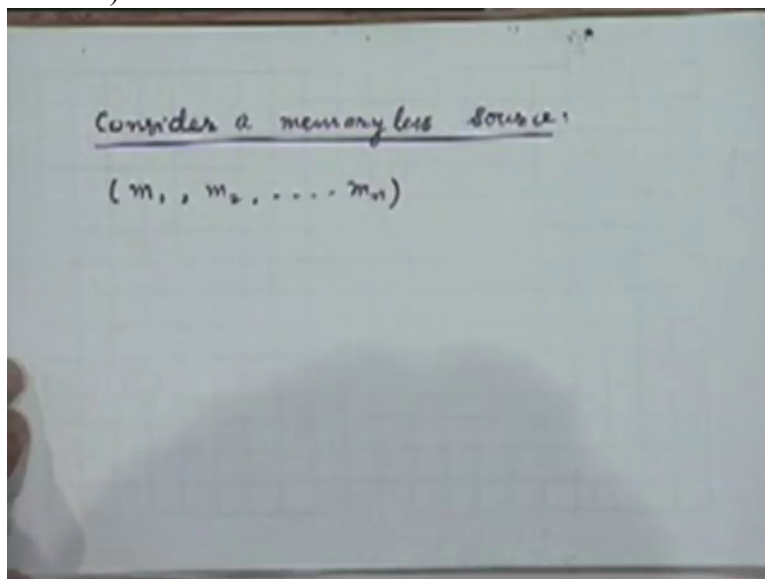 Consider a memoryless source:
(m₁, m₂, .... mₙ)